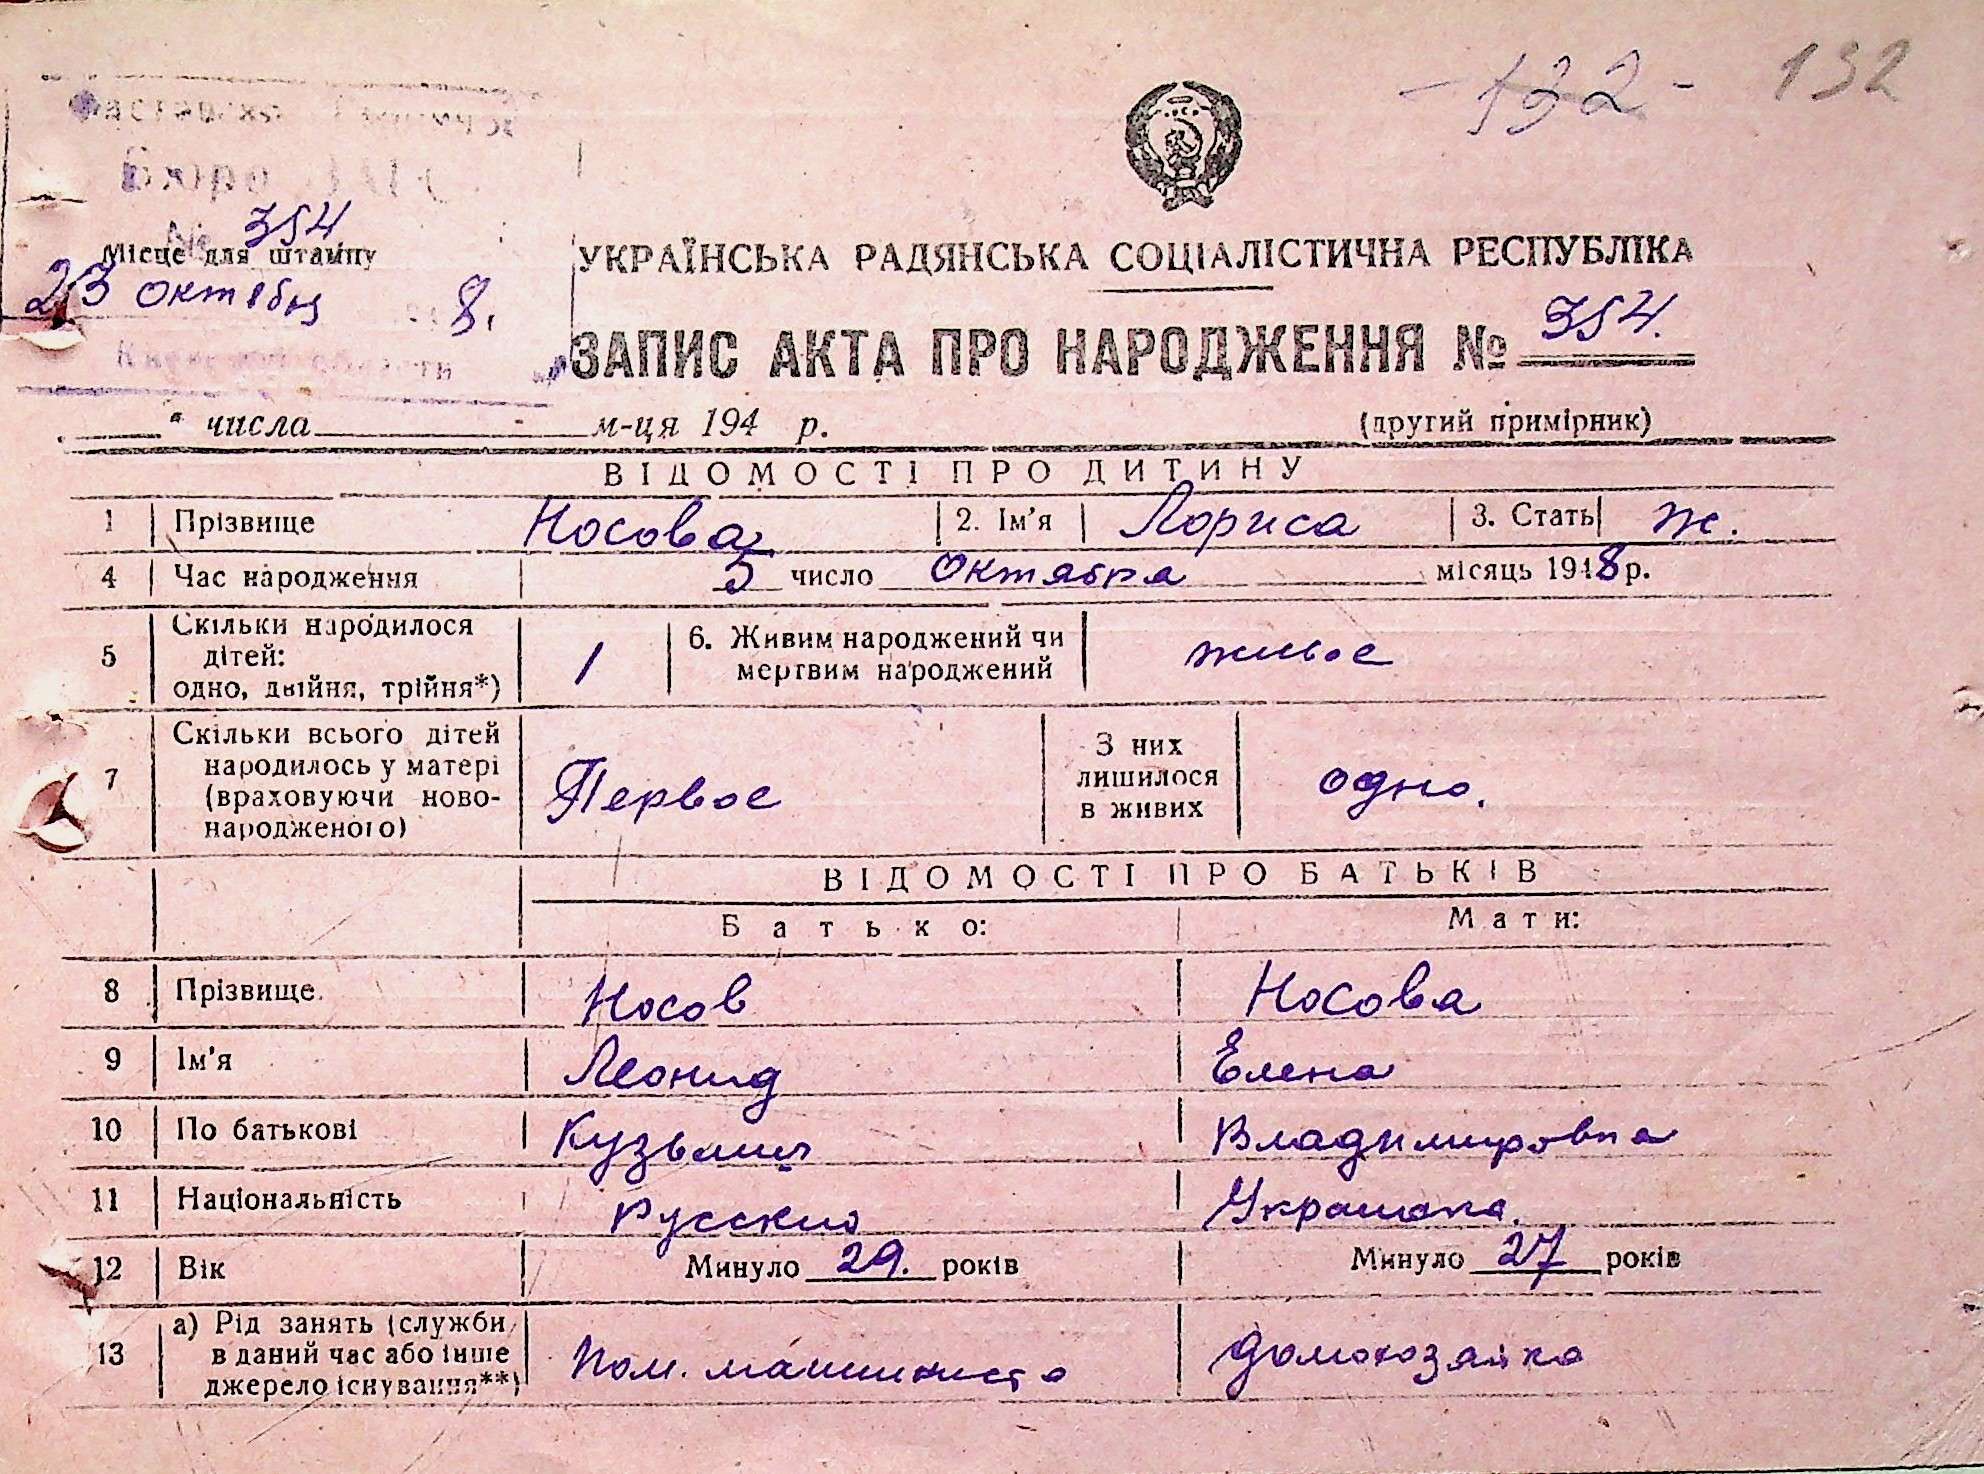 - 132 - 132
Бюро
354
Місце для штампу
УКРАЇНСЬКА РАДЯНСЬКА СОЦІАЛІСТИЧНА РЕСПУБЛІКА
23 октября 8.
ЗАПИС АКТА ПРО НАРОДЖЕННЯ № 354.
числа м-ця 194 р. (другий примірник)
ВІДОМОСТІ ПРО ДИТИНУ
1 Прізвище Носова 2. Ім'я Лориса 3. Стать ж.
4 Час народження 5 число Октября місяць 1948 р.
5 Скільки народилося дітей: одно, двійня, трійня*) 1 6. Живим народжений чи мертвим народжений живое
7 Скільки всього дітей народилось у матері (враховуючи ново-народженого) Первое З них лишилося в живих одно.
ВІДОМОСТІ ПРО БАТЬКІВ
Батько: Мати:
8 Прізвище Носов Носова
9 Ім'я Леонид Елена
10 По батькові Кузьмич Владимировна
11 Національність Русский Украинка.
12 Вік Минуло 29. років Минуло 27 років
13 а) Рід занять (служби в даний час або інше джерело існування**) Пом. машиниста домохозяйка